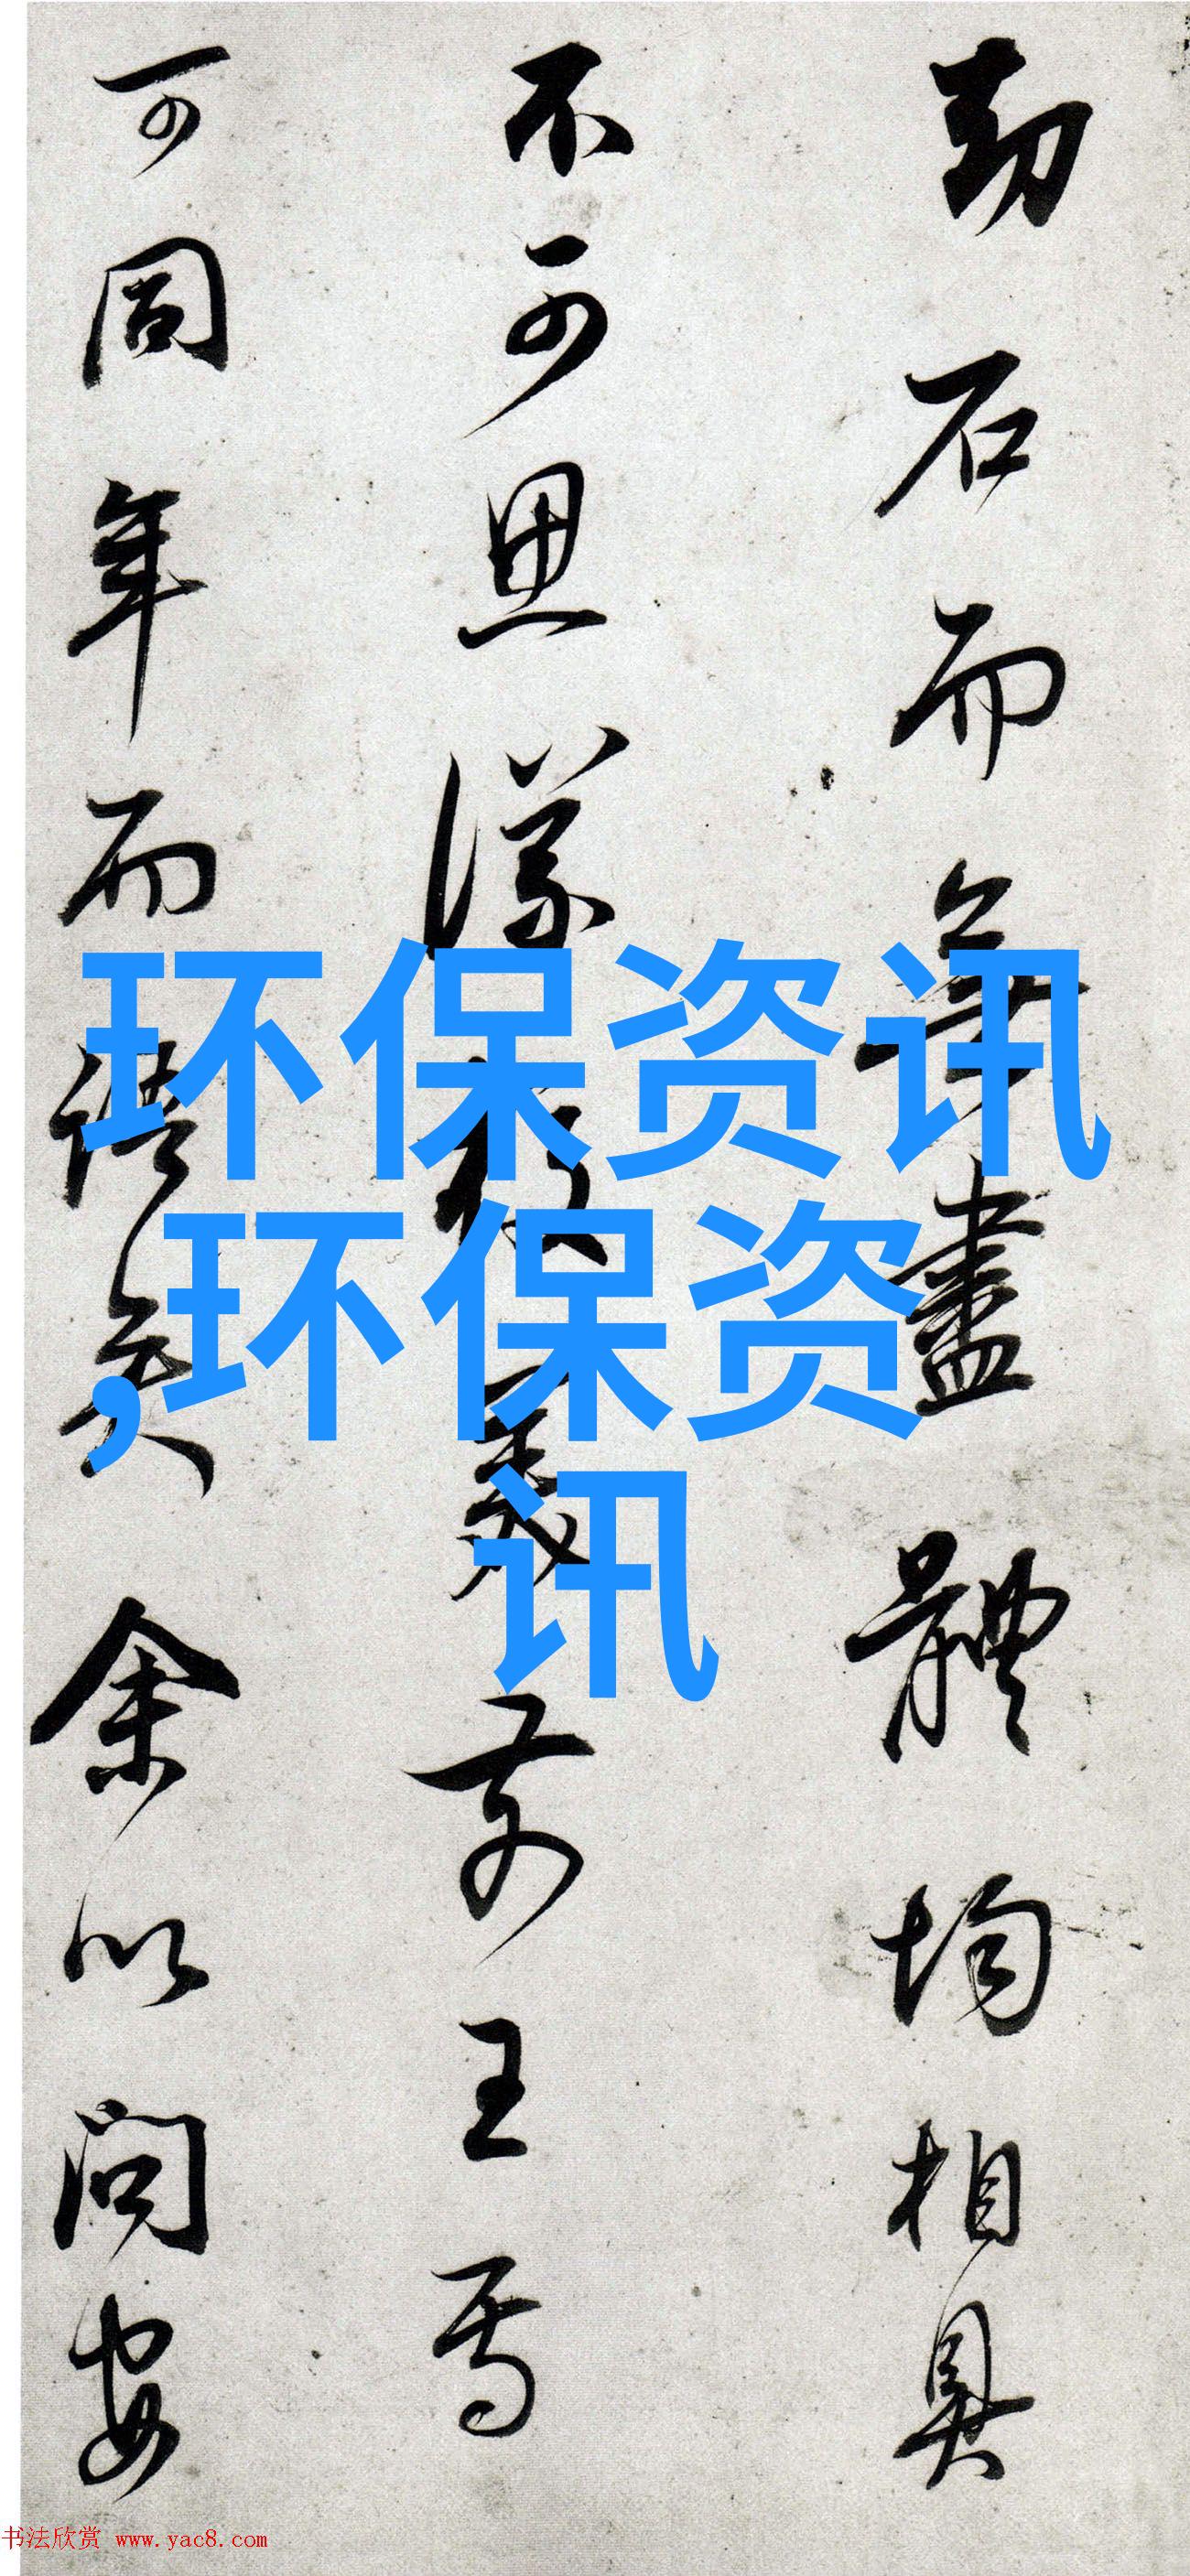 劫石而無盡體均相具
不可思議校美前王焉
可同年而語矣余以問安
环保资讯
,环保资
讯
书法欣赏 www.yac8.com